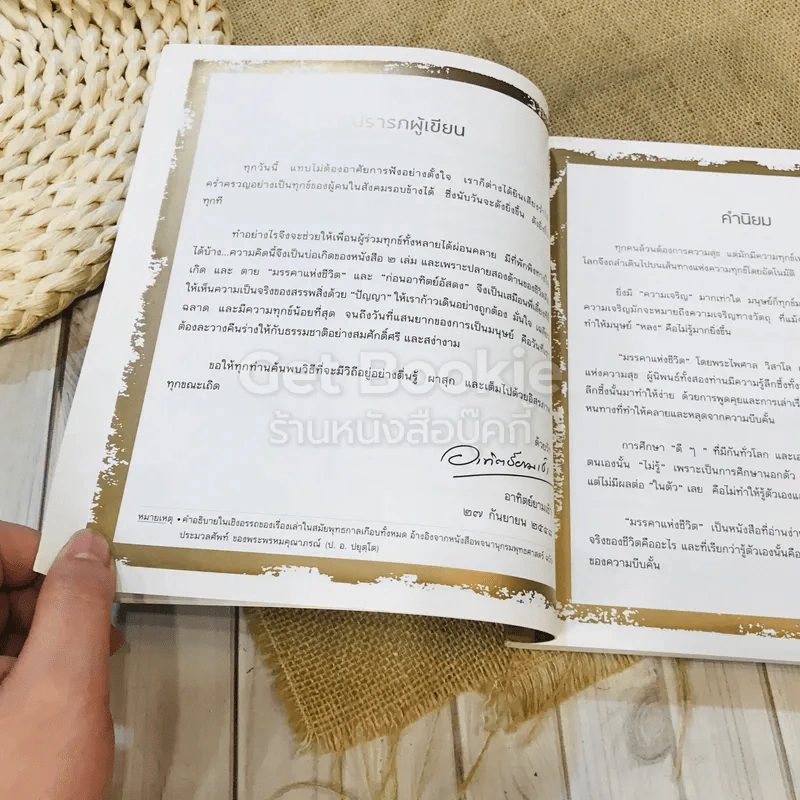 ปรารภผู้เขียน
ทุกวันนี้ แทบไม่ต้องอาศัยการฟังอย่างตั้งใจ เราก็ต่างได้ยินเสียง
คร่ำครวญอย่างเป็นทุกข์ของผู้คนในสังคมรอบข้างได้ ซึ่งนับวันจะดังยิ่งขึ้น
ทุกที
ทำอย่างไรจึงจะช่วยให้เพื่อนผู้ร่วมทุกข์ทั้งหลายได้ผ่อนคลาย มีที่พักพิง
ได้บ้าง...ความคิดนี้จึงเป็นบ่อเกิดของหนังสือ ๒ เล่ม และเพราะปลายสองด้านของชีวิต
เกิด และ ตาย "มรรคาแห่งชีวิต" และ "ก่อนอาทิตย์อัสดง" จึงเป็นเสมือนพี่เลี้ยง
ให้เห็นความเป็นจริงของสรรพสิ่งด้วย "ปัญญา" ให้เราก้าวเดินอย่างถูกต้อง มั่นใจ
ฉลาด และมีความทุกข์น้อยที่สุด จนถึงวันที่แสนยากของการเป็นมนุษย์ คือวันที่
ต้องละวางคืนร่างให้กับธรรมชาติอย่างสมศักดิ์ศรี และสง่างาม
ขอให้ทุกท่านค้นพบวิธีที่จะมีวิถีอยู่อย่างตื่นรู้ ผาสุก และเต็มไปด้วยอิสรภาพ
ทุกขณะเถิด
ด้วย
อาทิตย์ยามเช้า
๒๗ กันยายน
หมายเหตุ • คำอธิบายในเชิงอรรถของเรื่องเล่าในสมัยพุทธกาลเกือบทั้งหมด อ้างอิงจากหนังสือพจนานุกรมพุทธศาสตร์ ฉบับ
ประมวลศัพท์ ของพระพรหมคุณาภรณ์ (ป. อ. ปยุตฺโต)
คำนิยม
ทุกคนล้วนต้องการความสุข แต่มักมีความทุกข์
โลกจึงถลำเดินไปบนเส้นทางแห่งความทุกข์โดยอัตโนมัติ
ยิ่งมี "ความเจริญ" มากเท่าใด มนุษย์ก็ทุกข์
ความเจริญมักจะหมายถึงความเจริญทางวัตถุ ที่แม้
ทำให้มนุษย์ "หลง" คือไม่รู้มากยิ่งขึ้น
"มรรคาแห่งชีวิต" โดยพระไพศาล วิสาโล
แห่งความสุข ผู้นิพนธ์ทั้งสองท่านมีความรู้ลึกซึ้งทั้ง
ลึกซึ้งนั้นมาทำให้ง่าย ด้วยการพูดคุยและการเล่าเรื่อง
หนทางที่ทำให้คลายและหลุดจากความบีบคั้น
การศึกษา "ดี ๆ " ที่มีกันทั่วโลก และ
ตนเองนั้น "ไม่รู้" เพราะเป็นการศึกษานอกตัว
แต่ไม่มีผลต่อ "ในตัว" เลย คือไม่ทำให้รู้ตัวเอง
"มรรคาแห่งชีวิต" เป็นหนังสือที่อ่านง่าย
จริงของชีวิตคืออะไร และที่เรียกว่ารู้ตัวเองนั้นคือ
ของความบีบคั้น
Get Bookie
ร้านหนังสือบุ๊คกี้